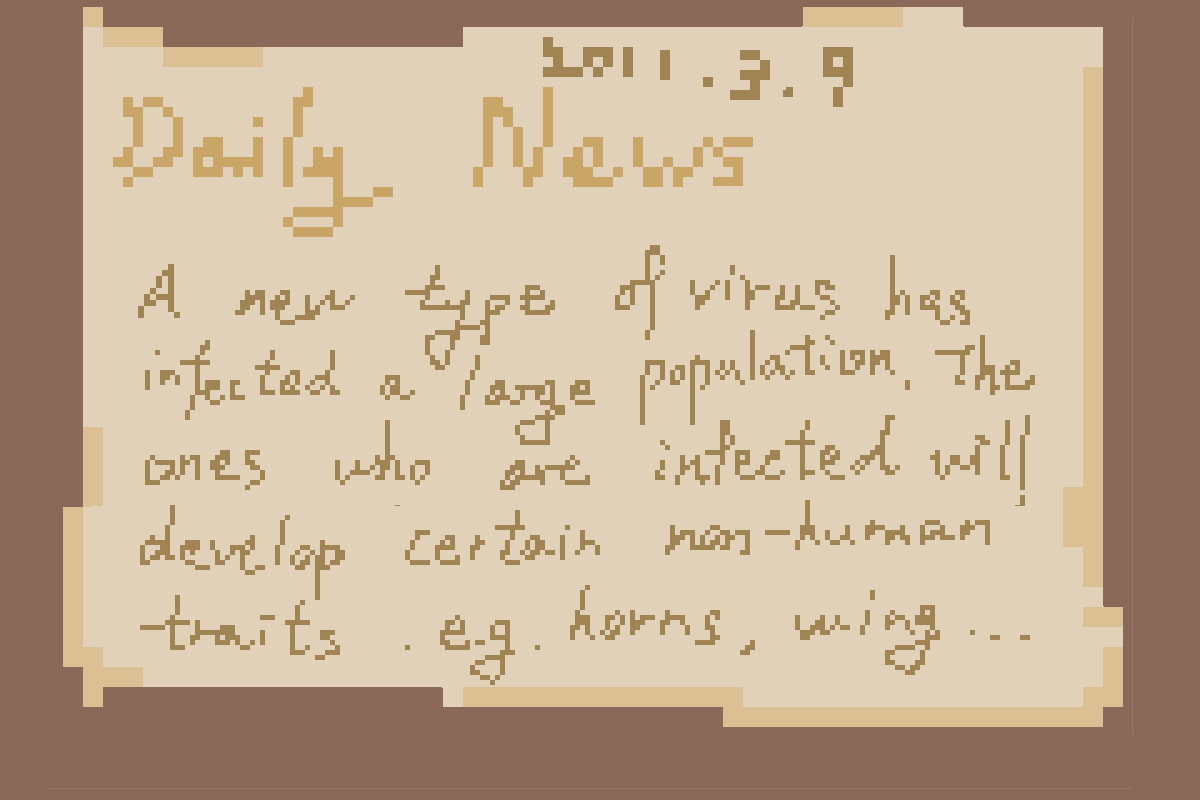 2011.3.9
Daily News
A new type of virus has
infected a large population. The
ones who are infected will
develop certain non-human
traits .eg. horns, wing...